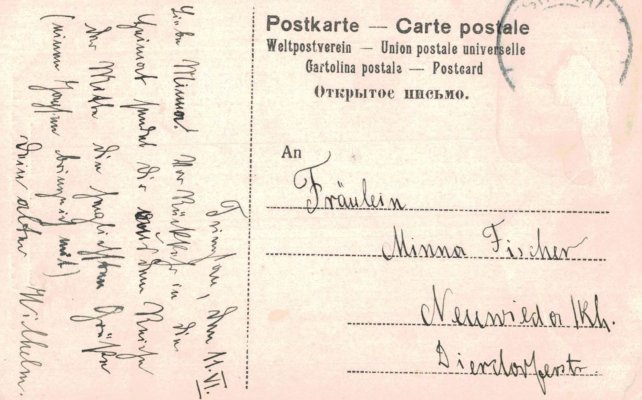 Postkarte — Carte postale
Weltpostverein — Union postale universelle
Cartolina postala — Postcard
Открытое письмо.
An
Fräulein
Minna Fischer
Neuwied a/Rh.
Dierdorferstr.
Tsingtau, den 11.VI.
Liebe Minna! Vor Rückkehr in die
Heimat sendet dir aus dem Reiche
der Mitte die herzlichsten Grüße
(einen bringe ich mit)
Dein alter Wilhelm.